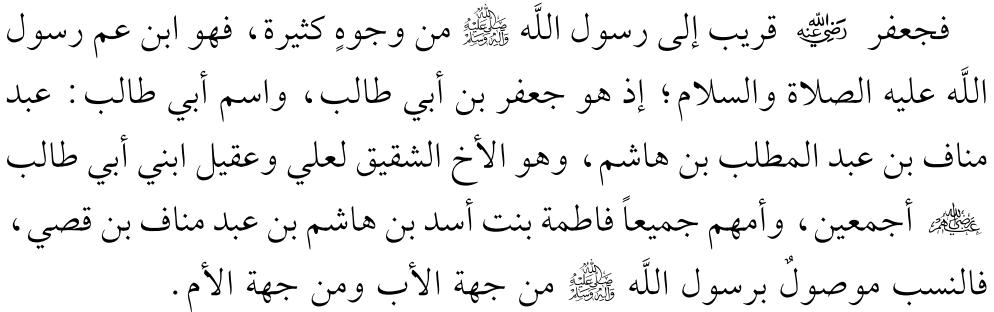 فجعفر رضي الله عنه قريب إلى رسول اللَّه صلى الله عليه وآله وسلم من وجوهٍ كثيرة، فهو ابن عم رسول
اللَّه عليه الصلاة والسلام؛ إذ هو جعفر بن أبي طالب، واسم أبي طالب: عبد
مناف بن عبد المطلب بن هاشم، وهو الأخ الشقيق لعلي وعقيل ابني أبي طالب
رضي الله عنهم أجمعين، وأمهم جميعاً فاطمة بنت أسد بن هاشم بن عبد مناف بن قصي،
فالنسب موصولٌ برسول اللَّه صلى الله عليه وآله وسلم من جهة الأب ومن جهة الأم.